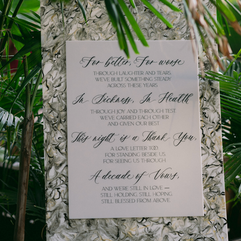 For better, For worse
THROUGH LAUGHTER AND TEARS,
WE'VE BUILT SOMETHING STEADY
ACROSS THESE YEARS
In Sickness, In Health
THROUGH JOY AND THROUGH TEST
WE'VE CARRIED EACH OTHER
AND GIVEN OUR BEST
This night is a Thank You,
A LOVE LETTER TOO
FOR STANDING BESIDE US
FOR SEEING US THROUGH
A decade of Vows,
AND WE'RE STILL IN LOVE —
STILL HOLDING, STILL HOPING,
STILL BLESSED FROM ABOVE